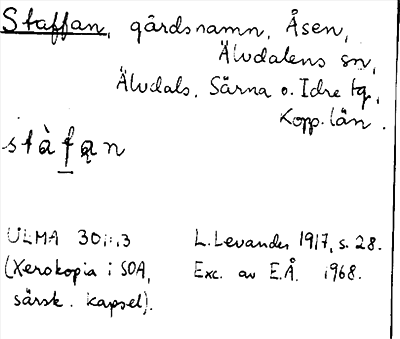 Staffan, gårdsnamn, Åsen,
Älvdalens sn,
Älvdals, Särna o. Idre tg,
Kopp. län.
stàfan
ULMA 30:3 L. Levander 1917, s. 28.
(Xerokopia i SOA, Exc. av E.Å. 1968.
särsk. kapsel).